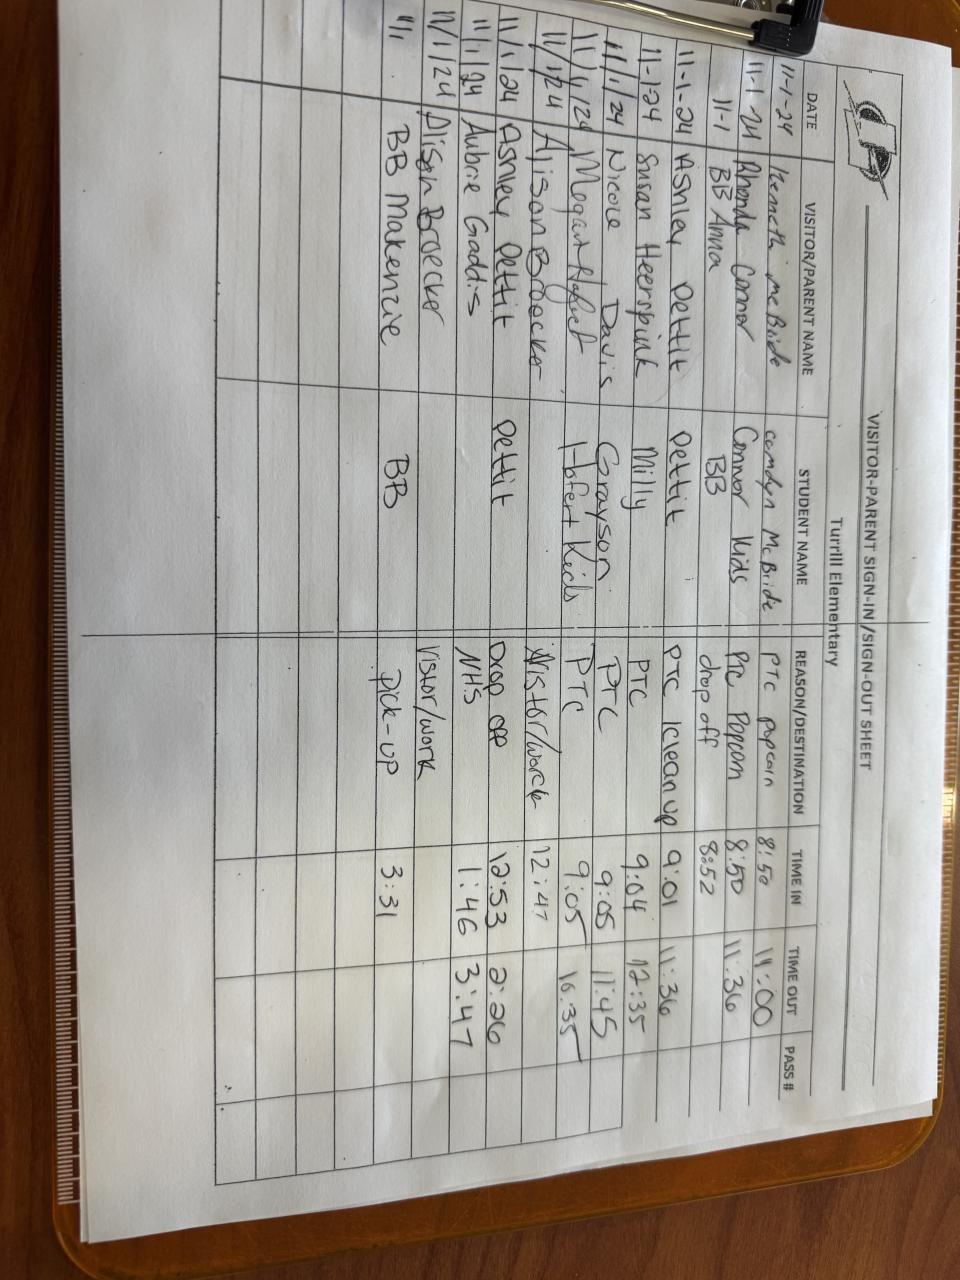 VISITOR-PARENT SIGN-IN/SIGN-OUT SHEET
Turrill Elementary
DATE VISITOR/PARENT NAME STUDENT NAME REASON/DESTINATION TIME IN TIME OUT PASS #
11-1-24 Kenneth McBride McBride PTC popcorn 8:50 11:00
11-1-24 Rhonda Connor Connor kids PTC Popcorn 8:50 11:36
11-1 BB Anna BB drop off 8:52
11-1-24 Ashley Pettit Pettit PTC cleanup 9:01 11:36
11-1-24 Susan Heerspink Milly PTC 9:04 12:35
11/1/24 Nicole Davis Grayson PTC 9:05 11:45
11/1/24 Megan Hofert Hofert Kids PTC 9:05
11/1/24 Alison Broecker Vistor/work 12:47
11/1/24 Ashley Pettit Pettit Drop off 12:53 2:26
11/1/24 Aubrie Gaddis NHS 1:46 3:47
11/1/24 Alison Broecker Vistor/work
11/1 BB Makenzie BB pick-up 3:31